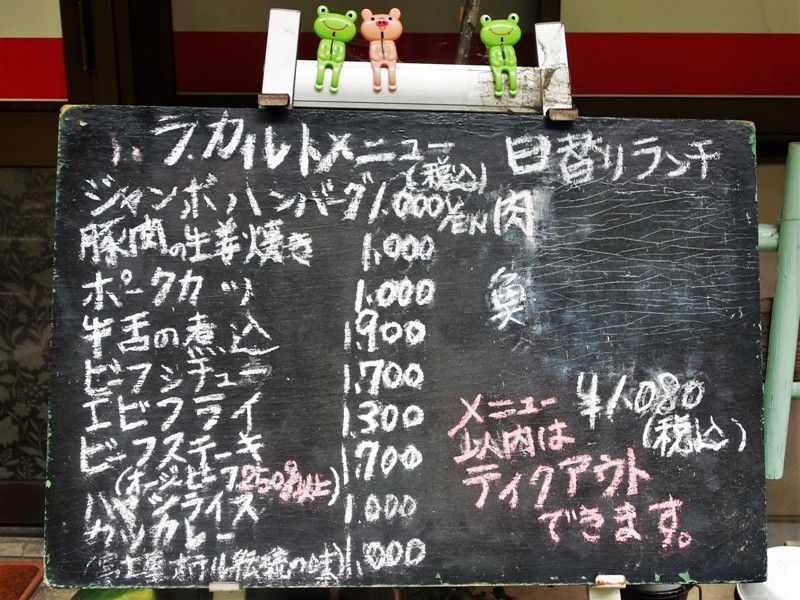 ラ.カルトメニュー
(税込)
ジャンボハンバーグ 1.000YEN
豚肉の生姜焼き 1.000
ポークカツ 1.000
牛舌の煮込 1.900
ビーフシチュー 1.700
エビフライ 1.300
ビーフステーキ 1.700
(オージービーフ250g以上)
ハヤシライス 1.000
カツカレー 1.000
(富士屋ホテル伝統の味)
日替りランチ
肉
魚
¥1.080
(税込)
メニュー
以内は
テイクアウト
できます。